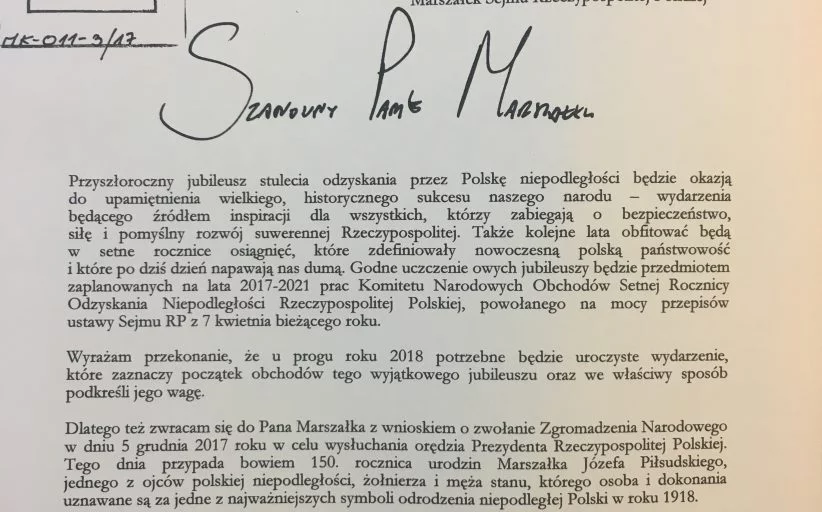 Marszałek Sejmu Rzeczypospolitej Polskiej
MK-011-3/17
SZANOWNY PANIE MARSZAŁKU
Przyszłoroczny jubileusz stulecia odzyskania przez Polskę niepodległości będzie okazją
do upamiętnienia wielkiego, historycznego sukcesu naszego narodu – wydarzenia
będącego źródłem inspiracji dla wszystkich, którzy zabiegają o bezpieczeństwo,
siłę i pomyślny rozwój suwerennej Rzeczypospolitej. Także kolejne lata obfitować będą
w setne rocznice osiągnięć, które zdefiniowały nowoczesną polską państwowość
i które po dziś dzień napawają nas dumą. Godne uczczenie owych jubileuszy będzie przedmiotem
zaplanowanych na lata 2017-2021 prac Komitetu Narodowych Obchodów Setnej Rocznicy
Odzyskania Niepodległości Rzeczypospolitej Polskiej, powołanego na mocy przepisów
ustawy Sejmu RP z 7 kwietnia bieżącego roku.
Wyrażam przekonanie, że u progu roku 2018 potrzebne będzie uroczyste wydarzenie,
które zaznaczy początek obchodów tego wyjątkowego jubileuszu oraz we właściwy sposób
podkreśli jego wagę.
Dlatego też zwracam się do Pana Marszałka z wnioskiem o zwołanie Zgromadzenia Narodowego
w dniu 5 grudnia 2017 roku w celu wysłuchania orędzia Prezydenta Rzeczypospolitej Polskiej.
Tego dnia przypada bowiem 150. rocznica urodzin Marszałka Józefa Piłsudskiego,
jednego z ojców polskiej niepodległości, żołnierza i męża stanu, którego osoba i dokonania
uznawane są za jedne z najważniejszych symboli odrodzenia niepodległej Polski w roku 1918.